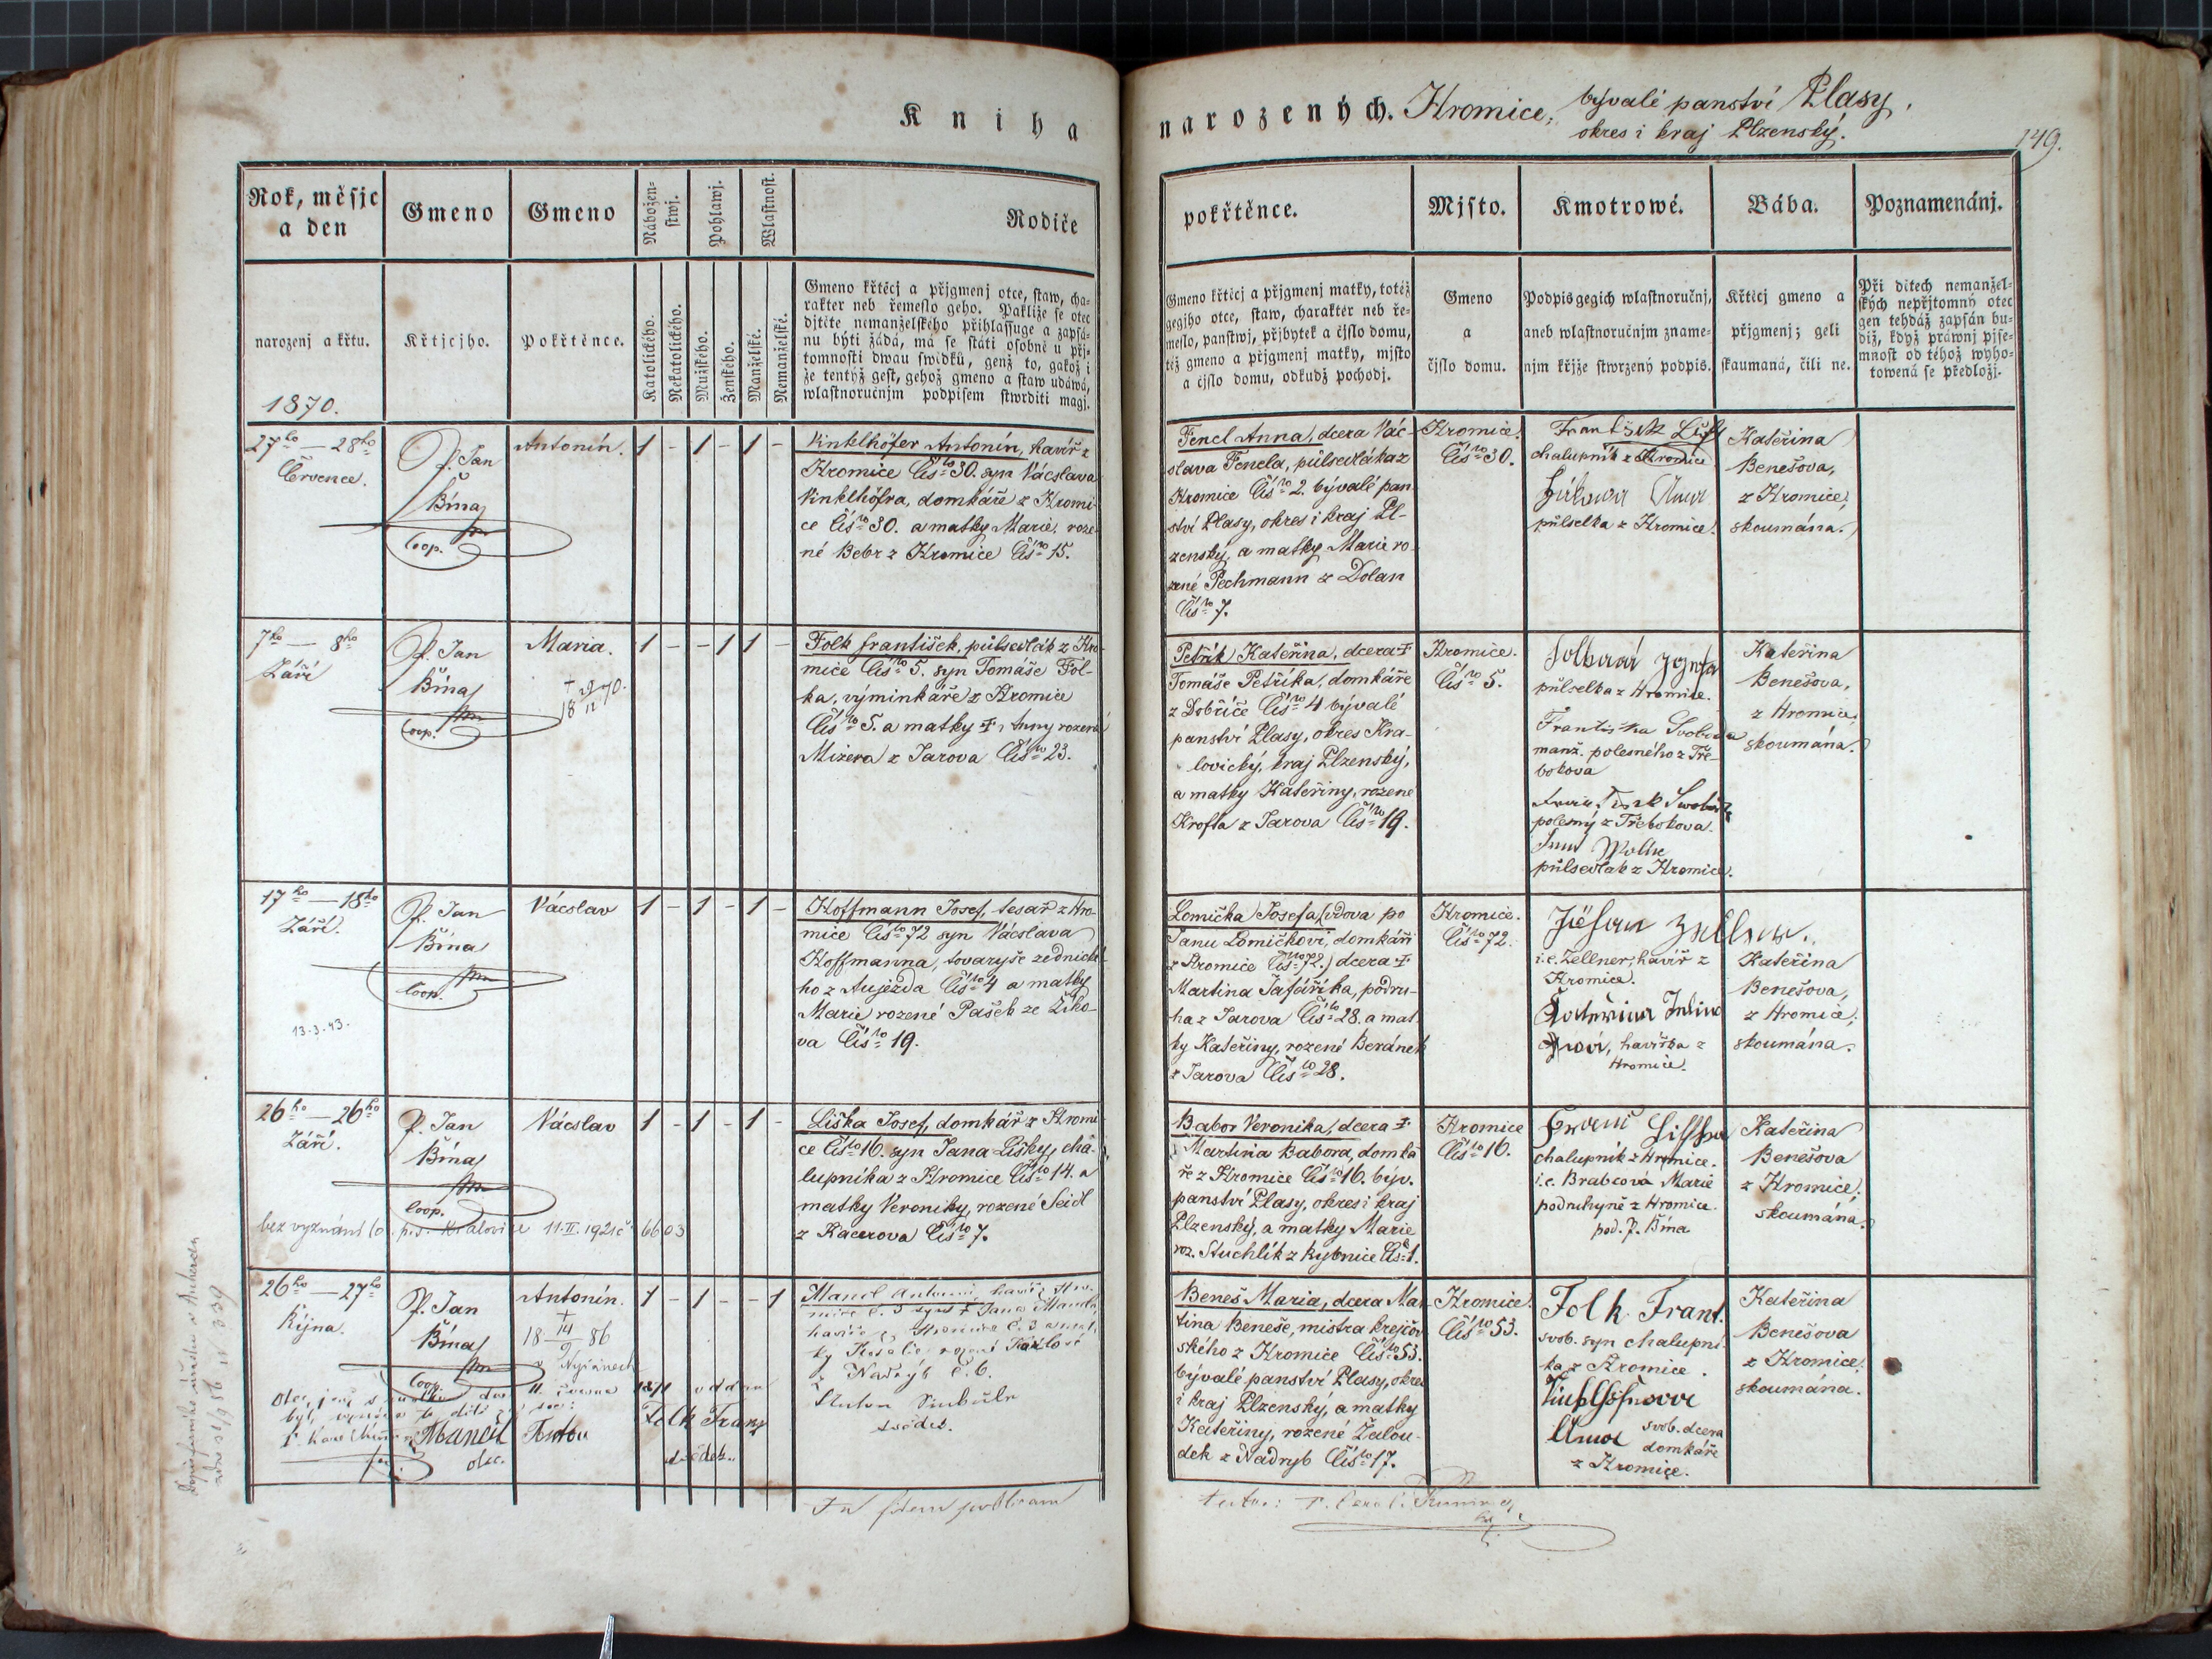 Kniha
narozených. Hromice, bývalé panství Plasy,
okres i kraj Plzenský.
149.
Rok, měsjc
a den
Gmeno
Gmeno
Nábožen-
stwj.
Pohlawj.
Wlastnost.
Rodiče
narozenj a křtu.
Křtjcjho.
Pokřtěnce.
Katolického.
Nekatolického.
Mužského.
Ženského.
Manželské.
Nemanželské.
Gmeno křtěcj a přjgmenj otce, staw, cha-
rakter neb řemeslo geho. Pakliže se otec
djtěte nemanželského přihlassuge a zapsá-
nu býti žádá, má se státi osobně u přj-
tomnosti dwau swědků, genž to, gakož i
že tentýž gest, gehož gmeno a staw udáwá,
wlastnoručnjm podpisem stwrditi magj.
1870.
27ho — 28ho
Července.
P. Jan
Bína
Coop.
Antonín.
1 - 1 - 1 -
Vinklhöfer Antonín, havíř z
Hromice Čís. 30. syn Václava
Vinklhöfra, domkáře z Hromi-
ce Čís. 30. a matky Marie, roze-
né Bebr z Hromice Čís. 15.
7ho — 8ho
Září
P. Jan
Bína
Coop.
Maria.
1 - - 1 1 -
Folk František, půlsedlák z Hro-
mice Čís. 5. syn Tomáše Fol-
ka, výminkáře z Hromice
Čís. 5. a matky † Anny rozené
Mizera z Jarova Čís. 23.
17ho — 18ho
Září.
P. Jan
Bína
Coop.
13.3.43.
Václav
1 - 1 - 1 -
Hoffmann Josef, tesař z Hro-
mice Čís. 72 syn Václava
Hoffmanna, tovaryše zednické-
ho z Aujezda Čís. 4 a matky
Marie rozené Pašek ze Žiko-
va Čís. 19.
26ho — 26ho
Září.
P. Jan
Bína
Coop.
bez vyznání
Kralovice 11.II.1921 č. 6603
Václav
1 - 1 - 1 -
Liška Josef, domkář z Hromi
ce Čís. 16. syn Jana Lišky, cha-
lupníka z Hromice Čís. 14. a
matky Veroniky, rozené Seidl
z Kacerova Čís. 7.
26ho — 27ho
Října.
P. Jan
Bína
Coop.
Antonín.
†
18 14/9 86
v Nýřanech
1 - 1 - - 1
Mancl Antonín, havíř z Hro-
mice č. 3 syn † Jana Mancla,
havíře z Hromice č. 3 a mat-
ky Rosalie rozené
z Nadryb č. 6.
svědek.
Folk Franz
svědek.
Mancil Anton
otec.
In fidem publicam
pokřtěnce.
Mjsto.
Kmotrowé.
Bába.
Poznamenánj.
Gmeno křtěcj a přjgmenj matky, totéž
gegjho otce, staw, charakter neb ře-
meslo, panstwj, přjbytek a čjslo domu,
též gmeno a přjgmenj matky, mjsto
a čjslo domu, odkudž pocházj.
Gmeno
a
čjslo domu.
Podpis gegich wlastnoručnj,
aneb wlastnoručnjm zname-
njm křjže stwrzený podpis.
Křtěcj gmeno a
přjgmenj; geli
skaumaná, čili ne.
Při dětech nemanžel-
ských nepřjtomný otec
gen tehdáž zapsán bu-
diž, když práwnj pjse-
mnost od téhož wyho-
towená se předložj.
Fencl Anna, dcera Vác-
slava Fencla, půlsedláka z
Hromice Čís. 2. bývalé pan-
ství Plasy, okres i kraj Pl-
zenský, a matky Marie ro-
zené Pechmann z Dolan
Čís. 7.
Hromice
Čís. 30.
František
chalupník z Hromice
půlselka z Hromice.
Kateřina
Benešova,
z Hromice,
skoumána.
Petřík Kateřina, dcera †
Tomáše Petříka, domkáře
z Dobříče Čís. 4 bývalé
panství Plasy, okres Kra-
lovický, kraj Plzenský,
a matky Kateřiny, rozené
Krofta z Jarova Čís. 19.
Hromice.
Čís. 5.
půlselka z Hromice.
Františka Svoboda
manž. polesného z Tře-
bokova
polesný z Třebokova.
půlsedlák z Hromice.
Kateřina
Benešova,
z Hromice,
skoumána.
Lomička Josefa (vdova po
Janu Lomičkovi, domkáři
z Hromice Čís. 72.) dcera †
Martina Jafáříka, podru-
ha z Jarova Čís. 28. a mat-
ky Kateřiny, rozené Beránek
z Jarova Čís. 28.
Hromice.
Čís. 72.
i.e. Zellner, havíř z
Hromice.
havířka z
Hromice.
Kateřina
Benešova,
z Hromice,
skoumána.
Babor Veronika, dcera †
Martina Babora, domká-
ře z Hromice Čís. 16. býv.
panství Plasy, okres i kraj
Plzenský, a matky Marie
roz. Stuchlík z Rybnice Čís. 1.
Hromice
Čís. 16.
Franc Lischka
chalupník z Hromice.
i.e. Brabcová Marie
podruhyně z Hromice.
pod. P. Bína
Kateřina
Benešova
z Hromice,
skoumána.
Beneš Maria, dcera Mar-
tina Beneše, mistra krejčov-
ského z Hromice Čís. 53.
bývalé panství Plasy, okres
i kraj Plzenský, a matky
Kateřiny, rozené Žalou-
dek z Nadryb Čís. 17.
Hromice.
Čís. 53.
Folk Frant.
svob. syn chalupní-
ka z Hromice.
Anna svob. dcera
domkáře
z Hromice.
Kateřina
Benešova
z Hromice,
skoumána.